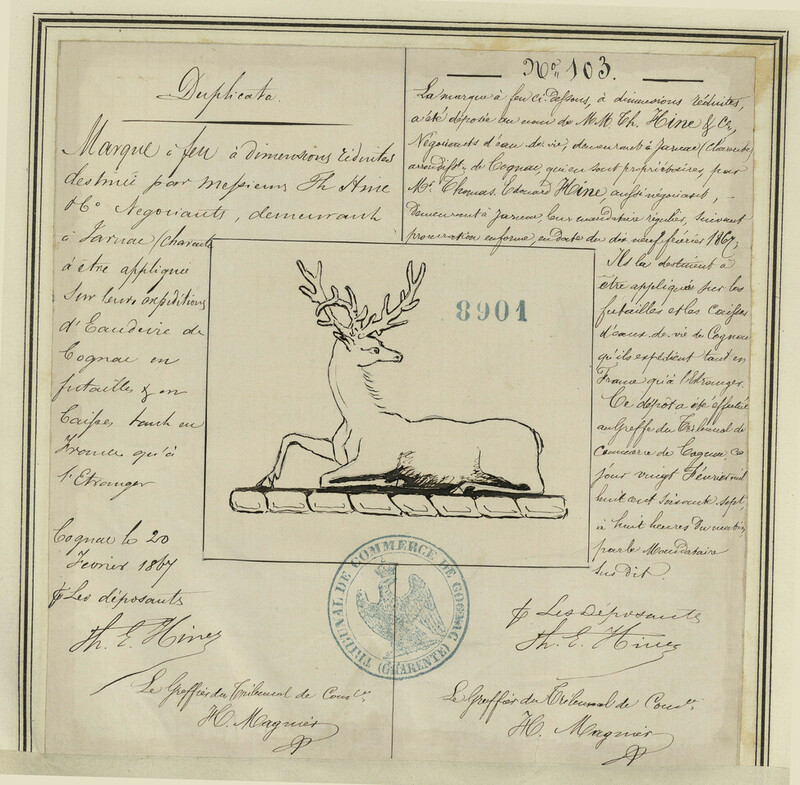 Duplicata.
Marque à feu à dimensions réduites
destinée pour messieurs Th Hine
& Cº Negociants, demeurant
à Jarnac (Charente
à être appliquée
sur leurs expéditions
d'Eaudevie de
Cognac en
futailles & en
Caisses tant en
France qu'à
l'Etranger
Cognac le 20
Fevrier 1867
Les déposants
Th. E. Hine
Le Greffier du Tribunal de Com
H. Magnier
Nº 103.
La marque à feu ci-dessous, à dimensions réduites,
a été déposée au nom de M.M. Th. Hine & Cie,
Négociants d'eau-de-vie, demeurant à Jarnac (Charente)
arrondist. de Cognac, qui en sont propriétaires par
Mr. Thomas Edouard Hine aussi négociant, -
Demeurant à Jarnac, leur mandataire régulier, suivant
procuration en forme, en date du dix neuf février 1867;
Ils la destinent à
être appliquée sur les
futailles et les caisses
d'eaux-de-vie de Cognac
qu'ils expédient tant en
France qu'à l'Etranger.
Ce dépôt a été effectué
au Greffe du Tribunal de
Commerce de Cognac, ce
jour vingt Février mil
huit cent soixante sept,
à huit heures du matin,
par le Mandataire
sus dit.
Les Déposants
Th. E. Hine
Le Greffier du Tribunal de Com
H. Magnier
8901
TRIBUNAL DE COMMERCE DE COGNAC
(CHARENTE)